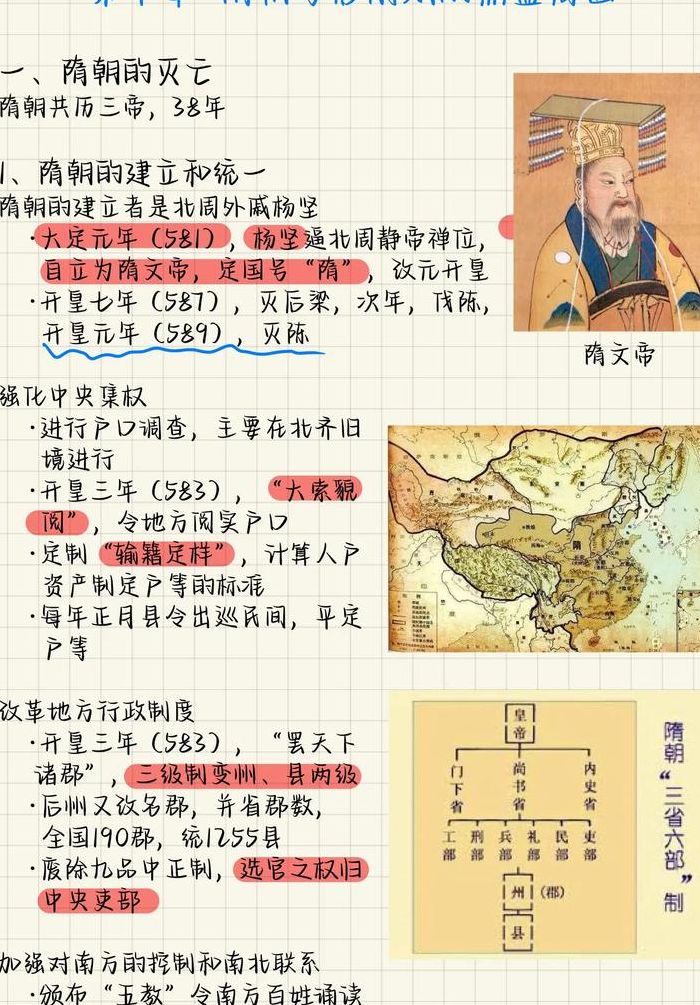 一、隋朝的灭亡
隋朝共历三帝，38年
1、隋朝的建立和统一
隋朝的建立者是北周外戚杨坚
·大定元年（581），杨坚逼北周静帝禅位，
自立为隋文帝，定国号“隋”，改元开皇
·开皇七年（587），灭后梁，次年，伐陈，
开皇元年（589），灭陈
隋文帝
强化中央集权
·进行户口调查，主要在北齐旧
境进行
·开皇三年（583），“大索貌
阅”，令地方阅实户口
·定制“输籍定样”，计算人户
资产制定户等的标准
·每年正月县令出巡民间，平定
户等
隋
改革地方行政制度
·开皇三年（583），“罢天下
诸郡”，三级制变州、县两级
·后州又改名郡，并省郡数，
全国190郡，统1255县
·废除九品中正制，选官之权归
中央吏部
皇帝
门下省 尚书省 内史省
工部 刑部 兵部 礼部 民部 吏部
州（郡）
县
隋朝“三省六部”制
加强对南方的控制和南北联系
·颁布“五教”令南方百姓诵读